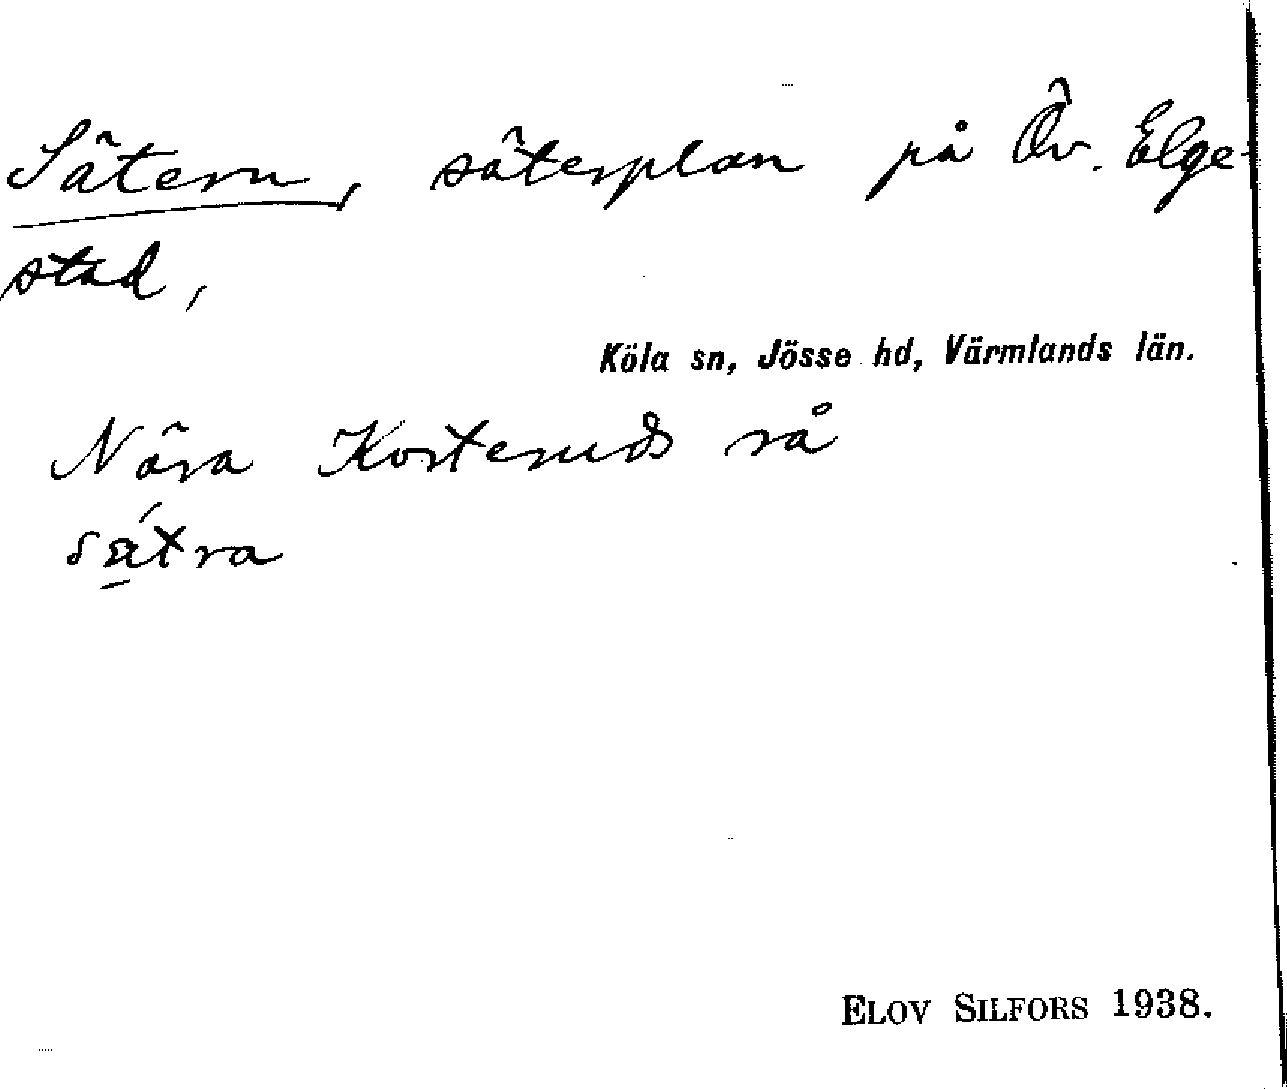 Sätern, säterplan på Öv. Elge-
stad,
Köla sn, Jösse hd, Värmlands län.
Nära Kosteruds rå
sä́tra
ELOV SILFORS 1938.